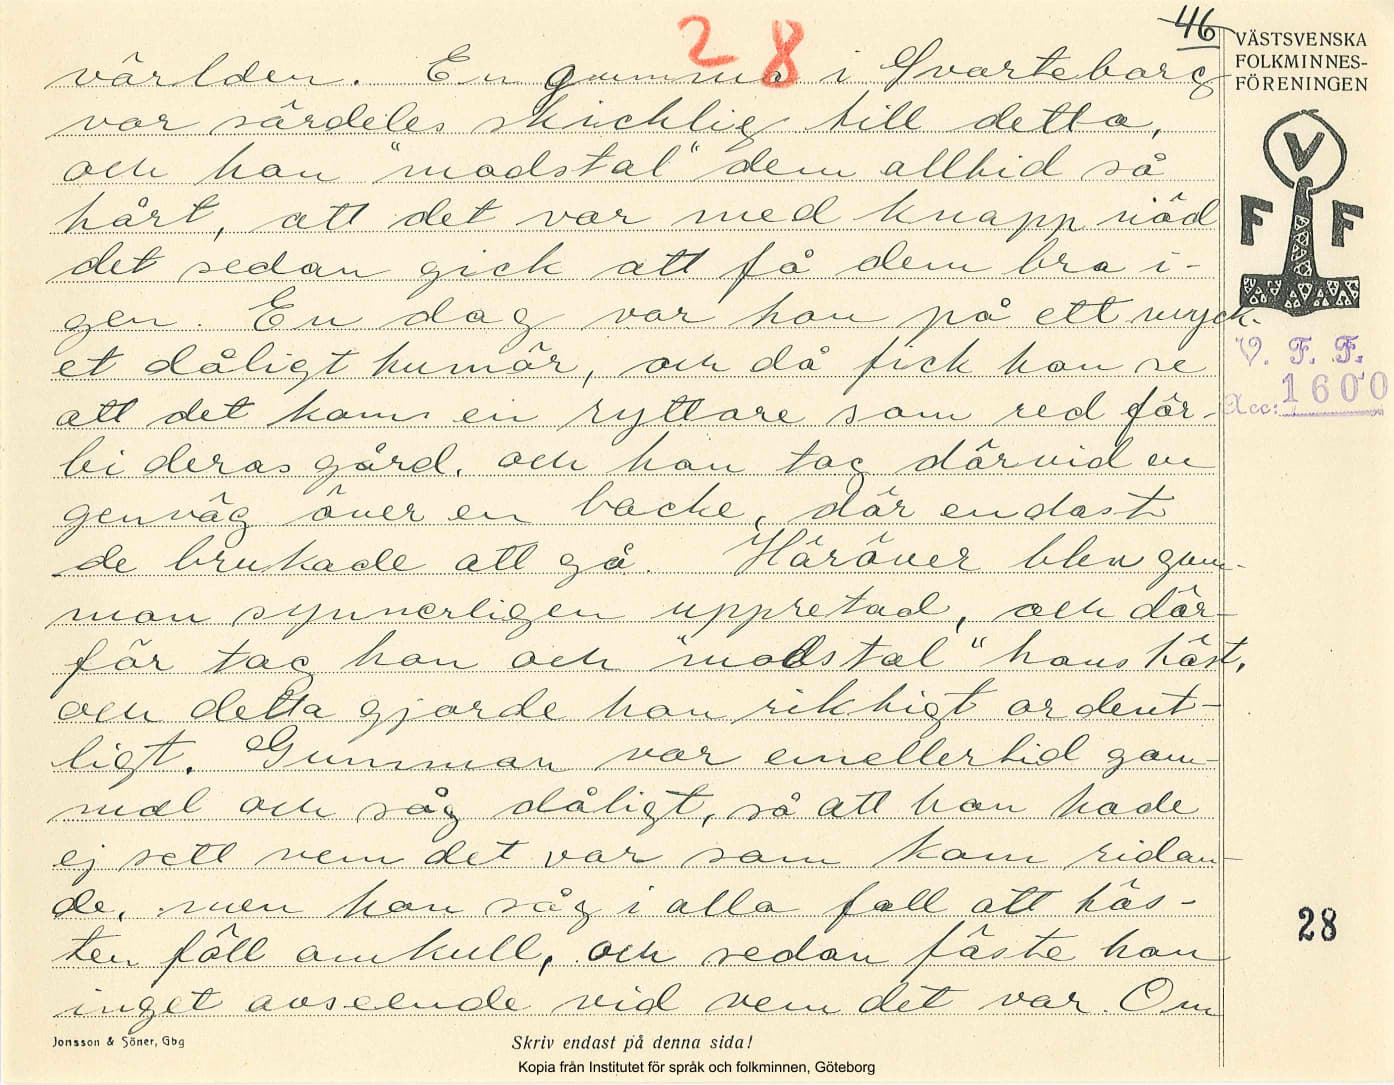 28
46
VÄSTSVENSKA
FOLKMINNES-
FÖRENINGEN
världen. En gumma i Svarteborg
var särdeles skicklig till detta,
och hon "modstal" dem alltid så
hårt, att det var med knapp nöd
det sedan gick att få dem bra i-
gen. En dag var hon på ett myck-
et dåligt humör, och då fick hon se
att det kom en ryttare som red för-
bi deras gård, och han tog därvid en
genväg över en backe, där endast
de brukade att gå. Häröver blev gum-
man synnerligen uppretad, och där-
för tog hon och "modstal" hans häst,
och detta gjorde hon riktigt ordent-
ligt. Gumman var emellertid gam-
mal och såg dåligt, så att hon hade
ej sett vem det var som kom ridan-
de, men hon såg i alla fall att häs-
ten föll omkull, och sedan fäste hon
inget avseende vid vem det var. Om
V
F F
V. F. F.
Acc: 1600
28
Jonsson & Söner, Gbg
Skriv endast på denna sida!
Kopia från Institutet för språk och folkminnen, Göteborg